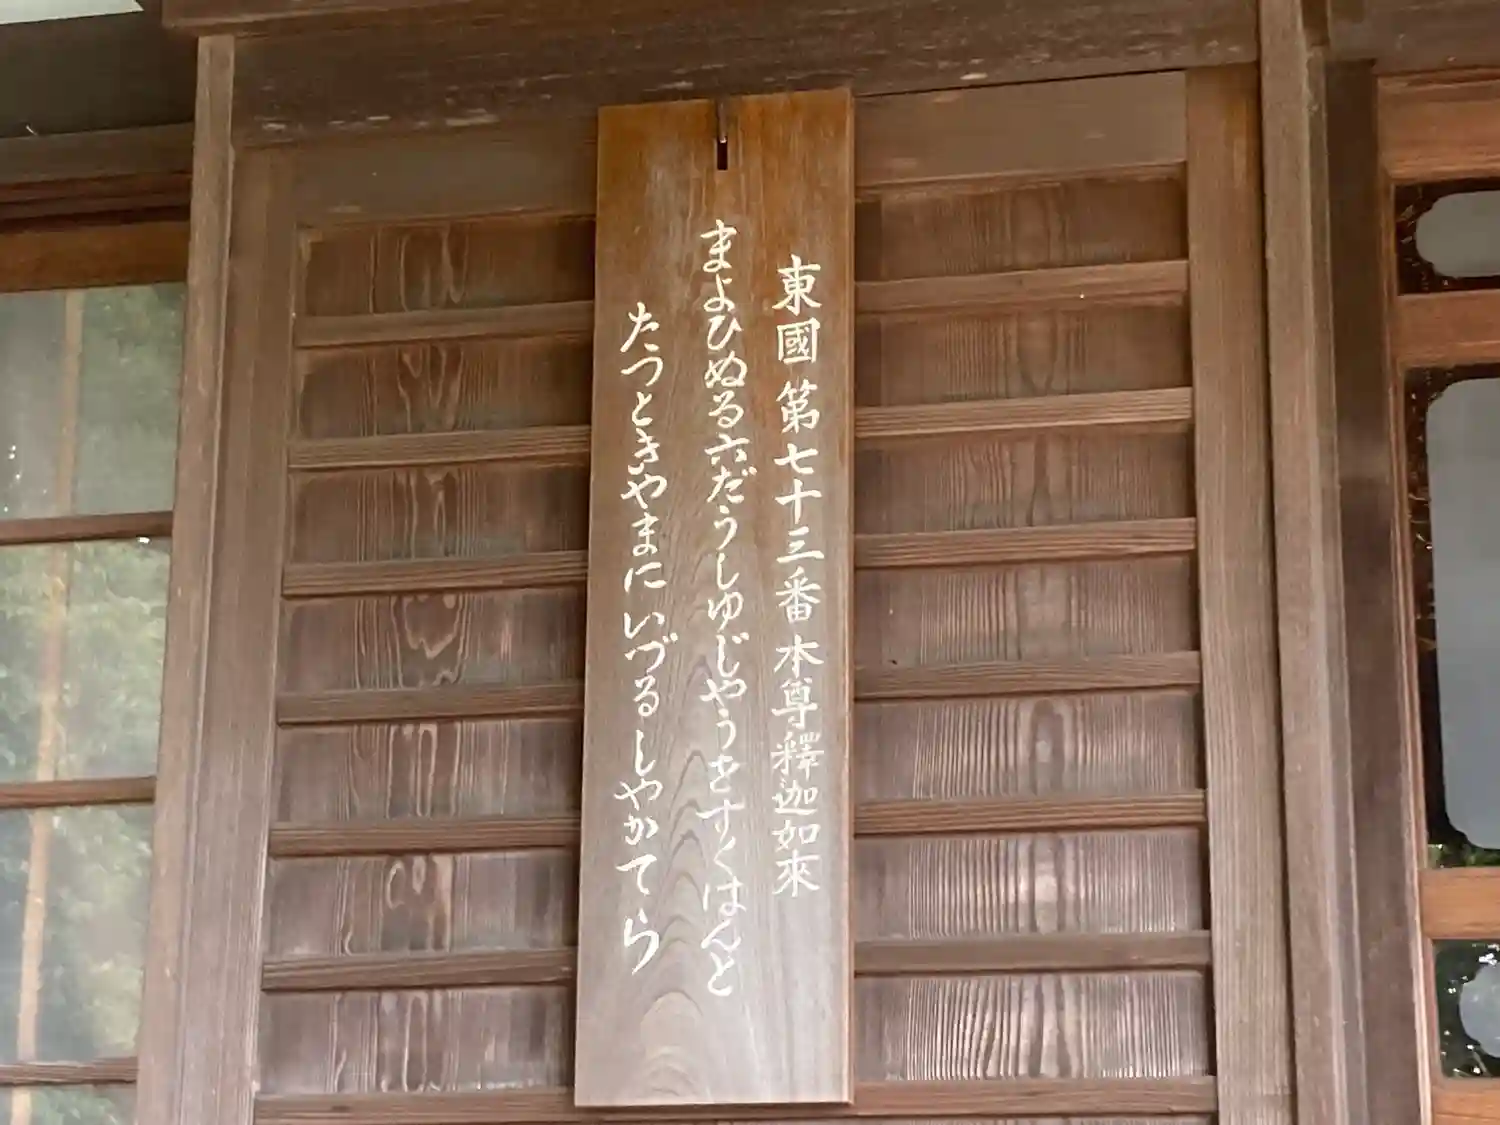 東國第七十三番本尊釋迦如來
まよひぬる六だうしゆじやうをすくはんと
たつときやまにいづるしやかてら